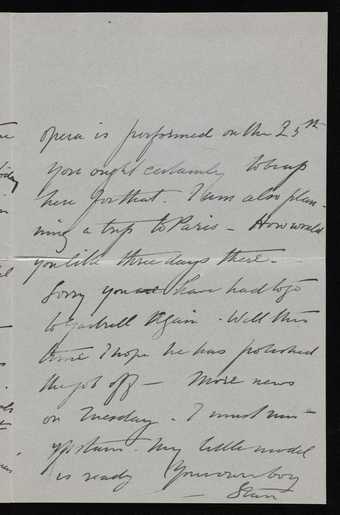 opera is performed on the 25th
you ought certainly to be up
here for that. I am also plan-
ning a trip to Paris - How would
you like three days there. -
Sorry you have had to go
to again. Well this
time I hope he has polished
the job off - More news
on Tuesday. I must run
upstairs. My little model
is ready Your own boy
-